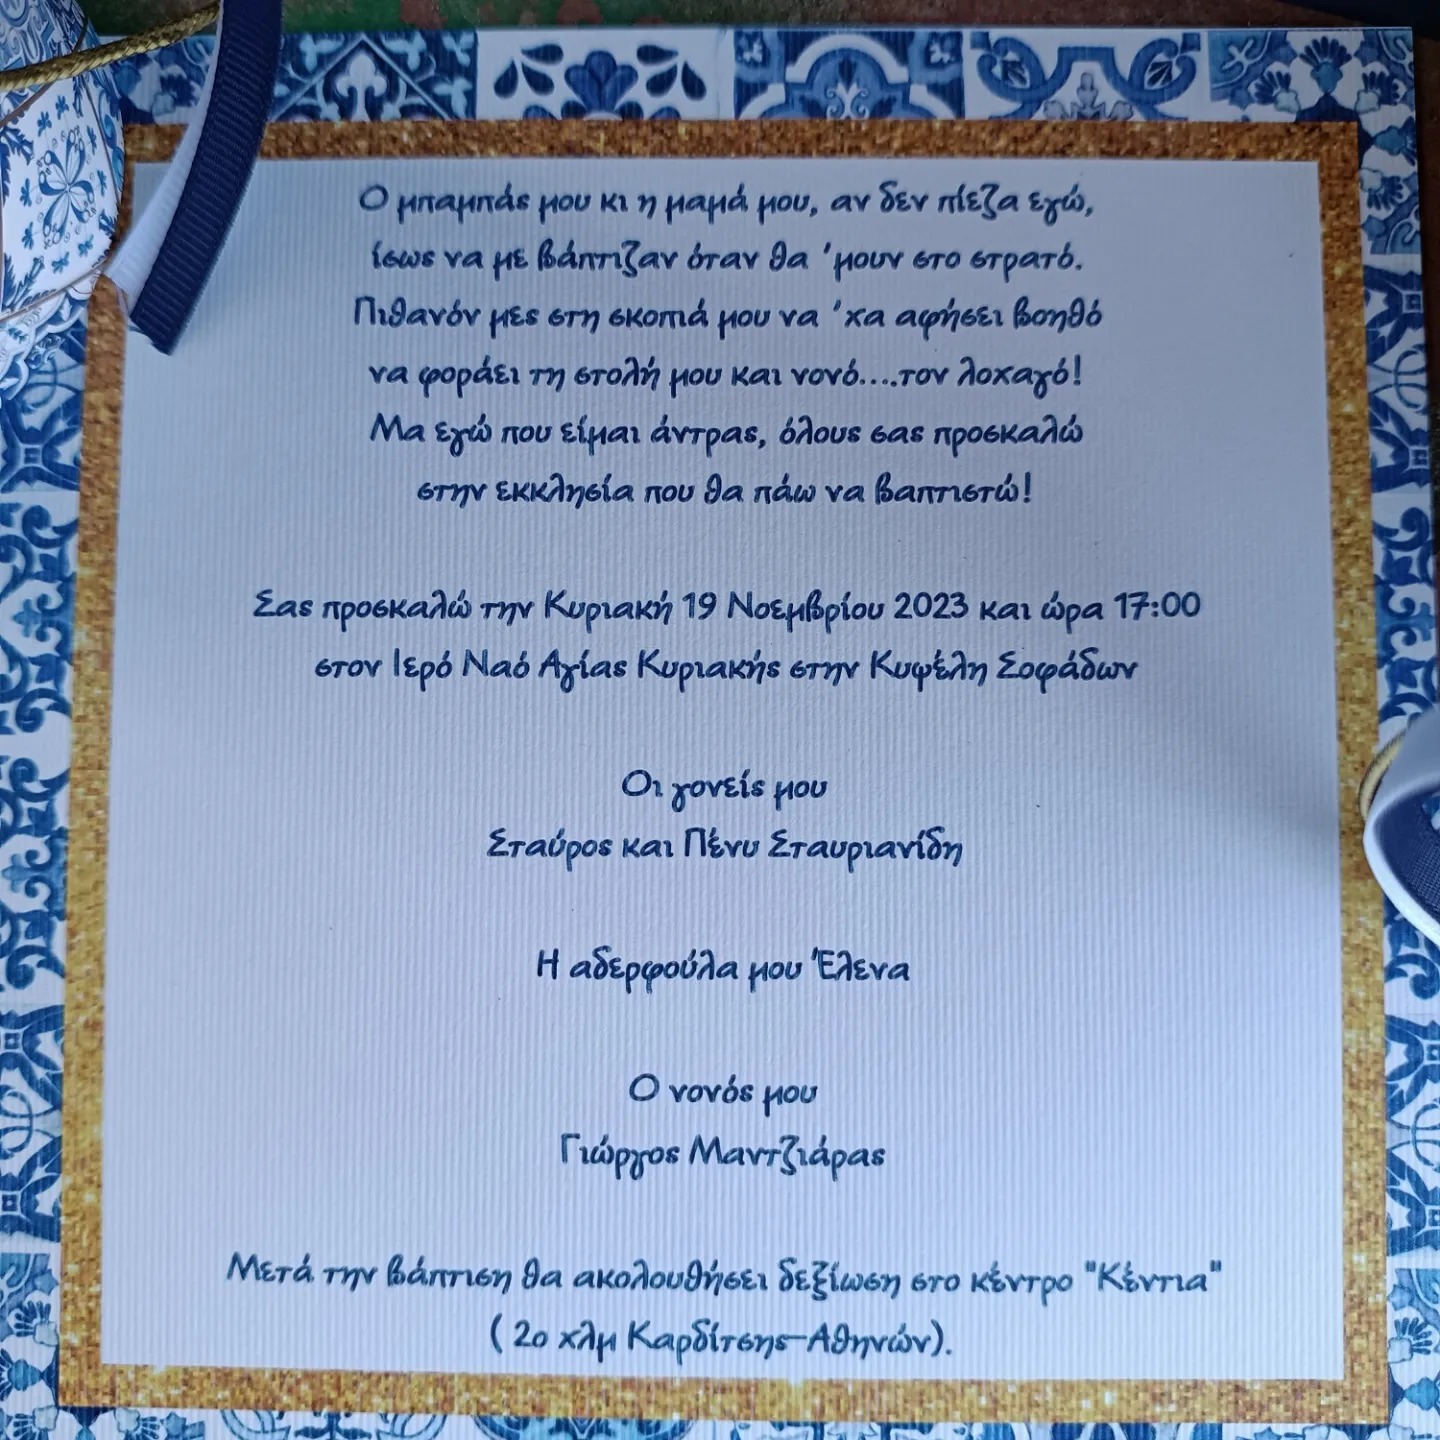 Ο μπαμπάς μου κι η μαμά μου, αν δεν πίεζα εγώ,
ίσως να με βάπτιζαν όταν θα 'μουν στο στρατό.
Πιθανόν μες στη σκοπιά μου να 'χα αφήσει βοηθό
να φοράει τη στολή μου και νονό....τον λοχαγό!
Μα εγώ που είμαι άντρας, όλους σας προσκαλώ
στην εκκλησία που θα πάω να βαπτιστώ!
Σας προσκαλώ την Κυριακή 19 Νοεμβρίου 2023 και ώρα 17:00
στον Ιερό Ναό Αγίας Κυριακής στην Κυψέλη Σοφάδων
Οι γονείς μου
Σταύρος και Πένυ Σταυριανίδη
Η αδερφούλα μου Έλενα
Ο νονός μου
Γιώργος Μαντζιάρας
Μετά την βάπτιση θα ακολουθήσει δεξίωση στο κέντρο "Κέντια"
( 2ο χλμ Καρδίτσης-Αθηνών).